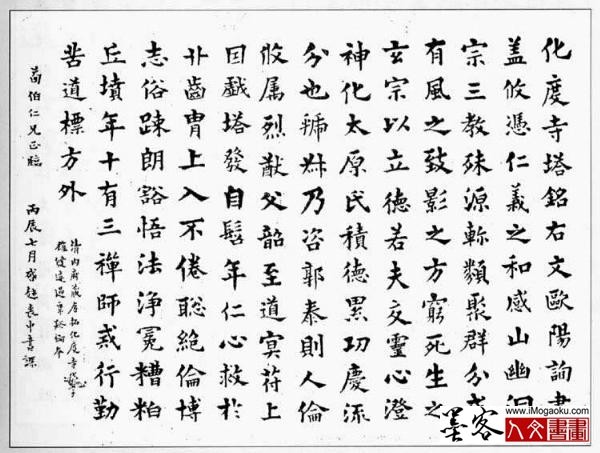 化度寺塔銘右文歐陽詢書
盖攸憑仁義之和感山幽洞
宗三教殊源軫類聚群分
有風之致影之方窮死生之
玄宗以立德若夫交靈心澄
神化太原氏積德累功慶流
分也號叔乃咨郭泰則人倫
攸属烈猷父韶至道㝠符上
田戲塔發自髫年仁心救於
丱齒胄上入不倦聡絶倫博
志俗踈朗豁悟法浄冕糟粕
丘墳年十有三禪師戒行勤
苦道標方外
清内府藏唐拓化度寺
伯仁兄正臨 丙辰七月
墨客
www.iMogaoku.com
人文書畫